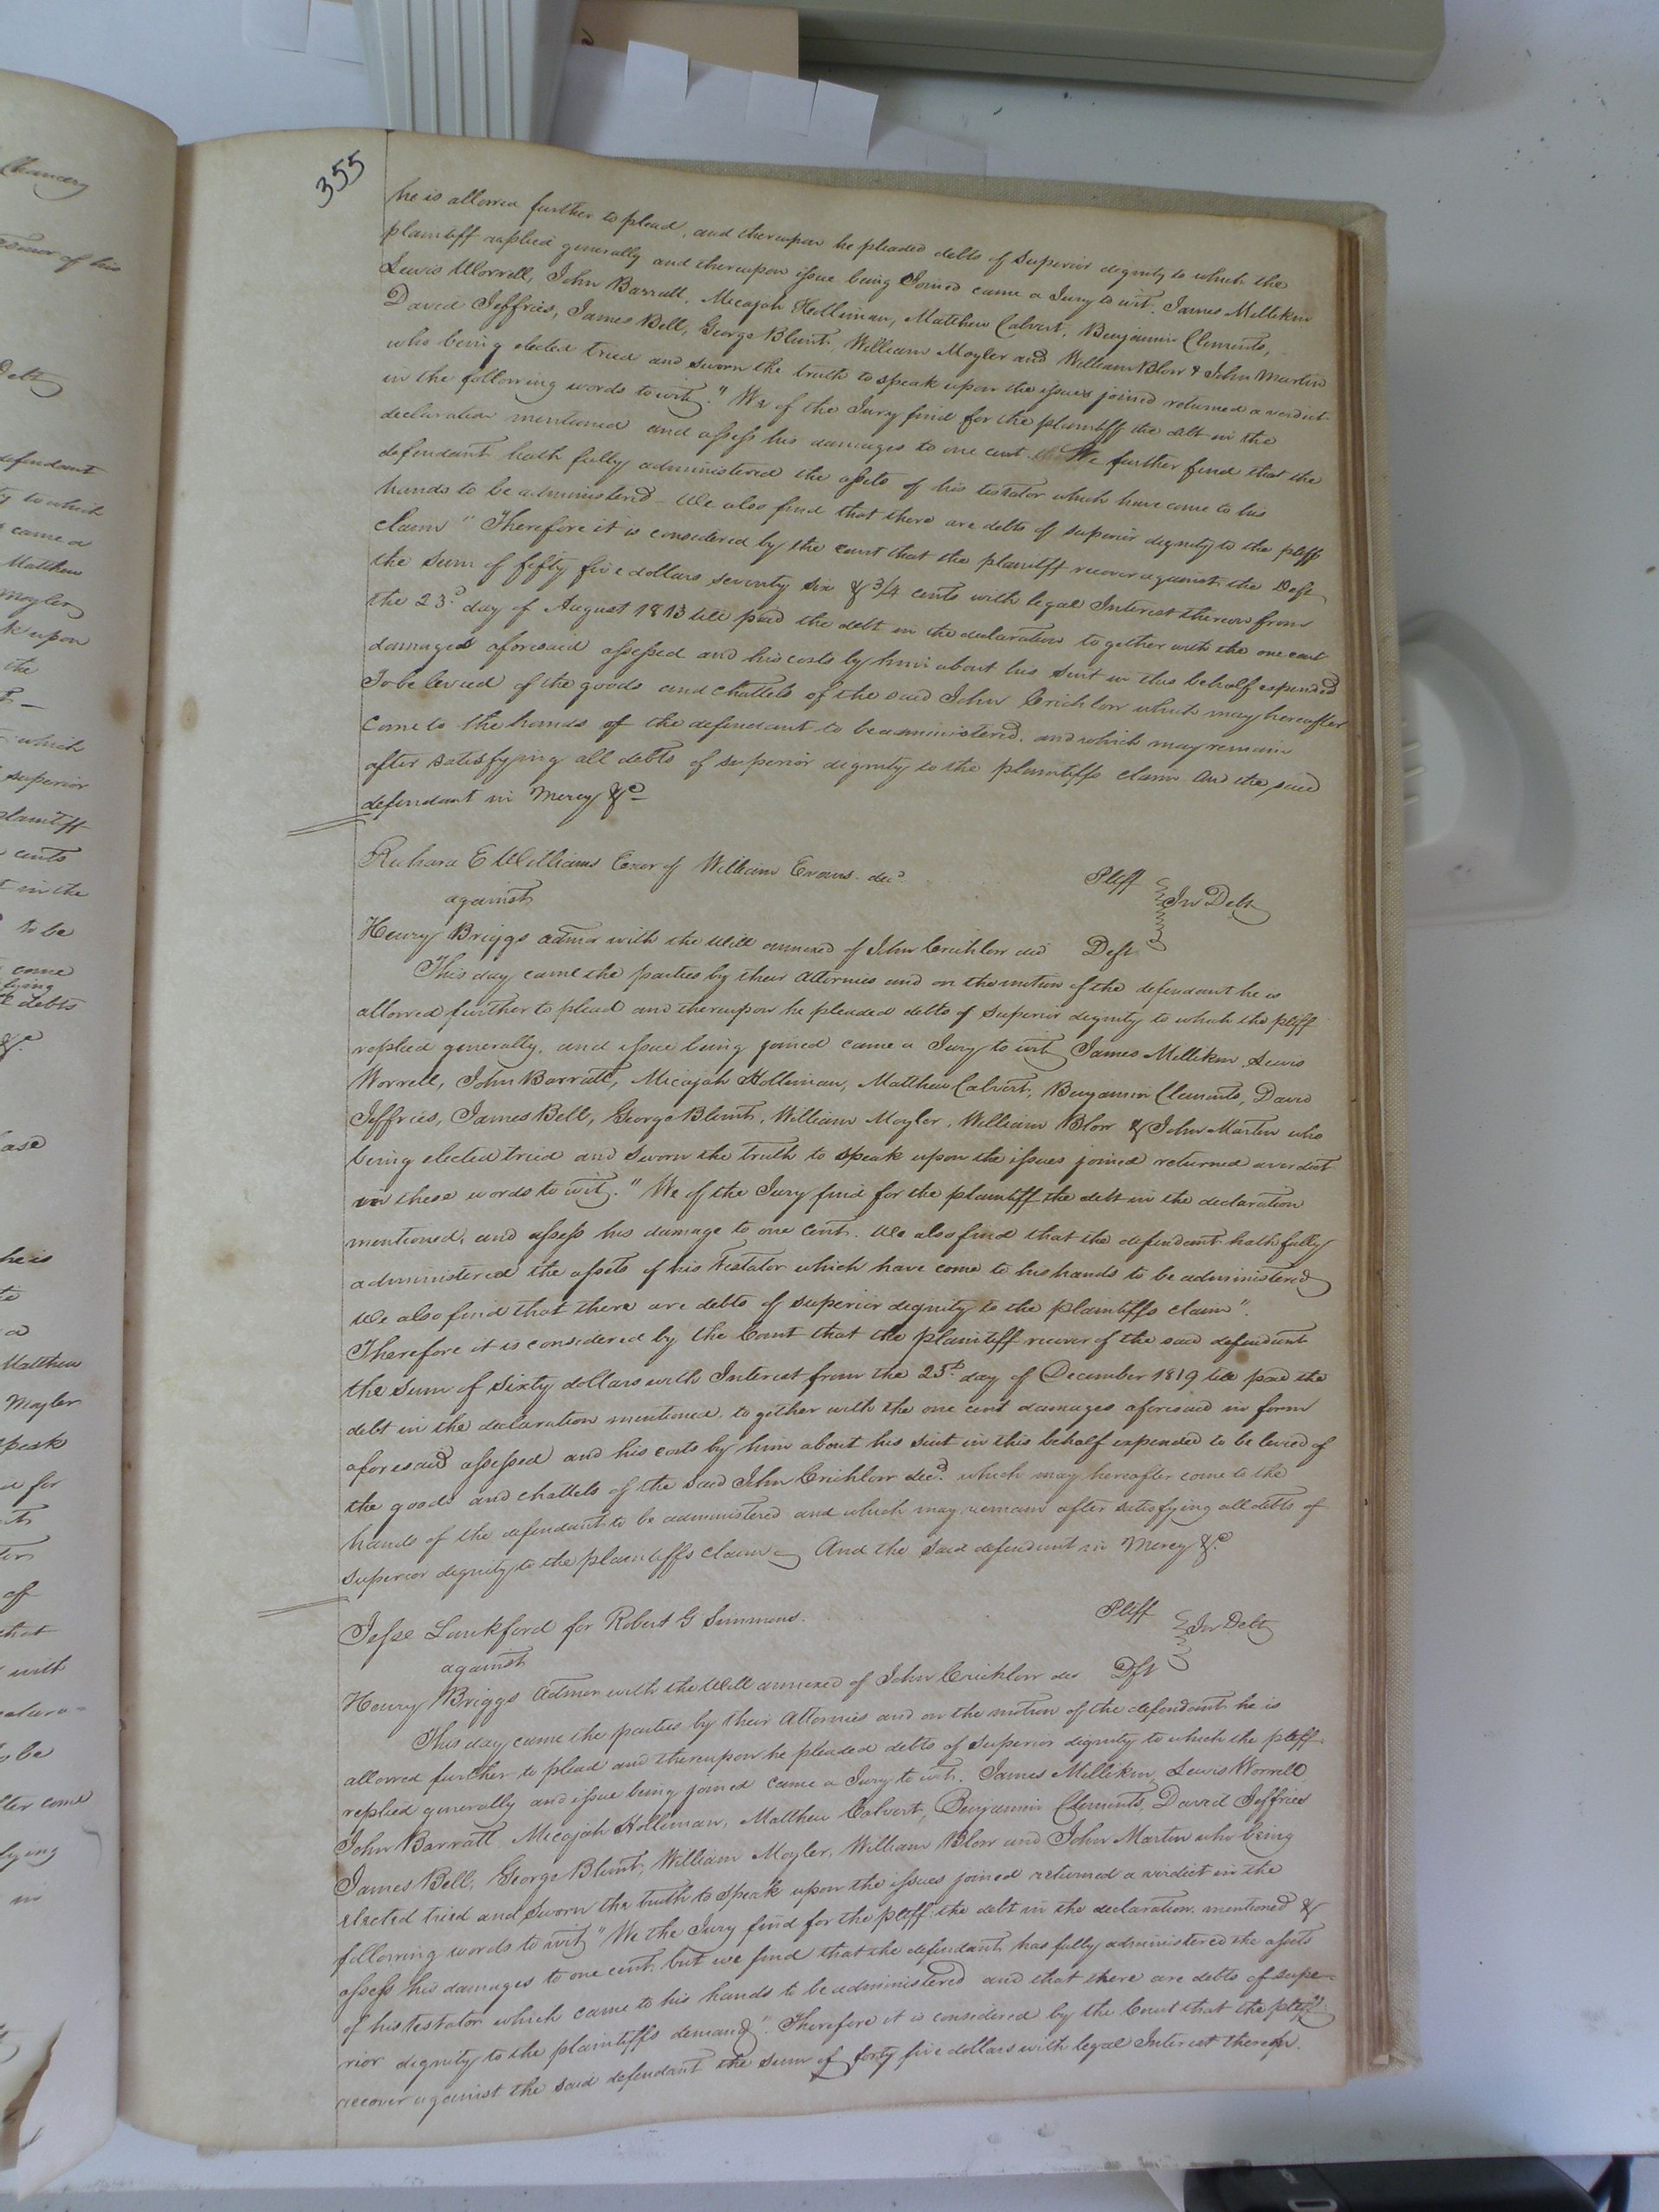 355
he is allowed further to plead, and thereupon he pleaded debts of Superior dignity to which the
plaintiff replied generally and thereupon issue being Joined came a Jury to wit. James Milliken
Lewis Worrell, John Barratt, Micajah Holliman, Matthew Calvert, Benjamin Clements,
David Jeffries, James Bell, George Blunt, William Moyler and William Blow & John Martin
who being elected tried and sworn the truth to speak upon the issues joined returned a verdict
in the following words to wit. "We of the Jury find for the plaintiff the debt in the
declaration mentioned and assess his damages to one cent. We further find that the
defendant hath fully administered the assets of his testator which have come to his
hands to be administered – We also find that there are debts of superior dignity to the pltff
claim" Therefore it is considered by the court that the plaintiff recover against the Deft
the sum of fifty five dollars seventy six & 3/4 cents with legal Interest thereon from
the 23d day of August 1813 till paid the debt in the declaration together with the one cent
damages aforesaid assessed and his costs by him about his Suit in this behalf expended
To be levied of the goods and chattels of the said John Crichlow which may hereafter
come to the hands of the defendant to be administered. and which may remain
after satisfying all debts of superior dignity to the plaintiffs claim And the said
defendant in Mercy &c
Richard E Williams Exor of William Evans decd. Pltff
against In Debt
Henry Briggs admor with the Will annexed of John Crichlow decd Deft
This day came the parties by their Attornies and on the motion of the defendant he is
allowed further to plead and thereupon he pleaded debts of Superior dignity to which the pltff
replied generally, and issue being joined came a Jury to wit James Milliken, Lewis
Worrell, John Barratt, Micajah Holliman, Matthew Calvert, Benjamin Clements, David
Jeffries, James Bell, George Blunt, William Moyler, William Blow & John Martin who
being elected tried and sworn the truth to speak upon the issues joined returned a verdict
in these words to wit. "We of the Jury find for the plaintiff the debt in the declaration
mentioned, and assess his damage to one cent. We also find that the defendant hath fully
administered the assets of his Testator which have come to his hands to be administered
We also find that there are debts of superior dignity to the plaintiffs claim".
Therefore it is considered by the Court that the plaintiff recover of the said defendant
the sum of Sixty dollars with Interest from the 25th day of December 1819 till paid the
debt in the declaration mentioned, together with the one cent damages aforesaid in form
aforesaid assessed and his costs by him about his suit in this behalf expended to be levied of
the goods and chattels of the said John Crichlow decd. which may hereafter come to the
hands of the defendant to be administered and which may remain after satisfying all debts of
superior dignity to the plaintiffs claim – And the said defendant in Mercy &c
Jesse Lankford for Robert G Simmons. Pltff
against In Debt
Henry Briggs Admor with the Will annexed of John Crichlow dec Dft
This day came the parties by their Attornies and on the motion of the defendant he is
allowed further to plead and thereupon he pleaded debts of Superior dignity to which the pltff
replied generally and issue being joined came a Jury to wit. James Milliken, Lewis Worrell
John Barratt, Micajah Holliman, Matthew Calvert, Benjamin Clements, David Jeffries
James Bell, George Blunt, William Moyler, William Blow and John Martin who being
elected tried and sworn the truth to speak upon the issues joined returned a verdict in the
following words to wit "We the Jury find for the pltff the debt in the declaration mentioned &
assess his damages to one cent. but we find that the defendant has fully administered the assets
of his testator which came to his hands to be administered and that there are debts of supe=
rior dignity to the plaintiffs demand". Therefore it is considered by the Court that the pltff
recover against the said defendant the sum of forty five dollars with legal Interest thereon.